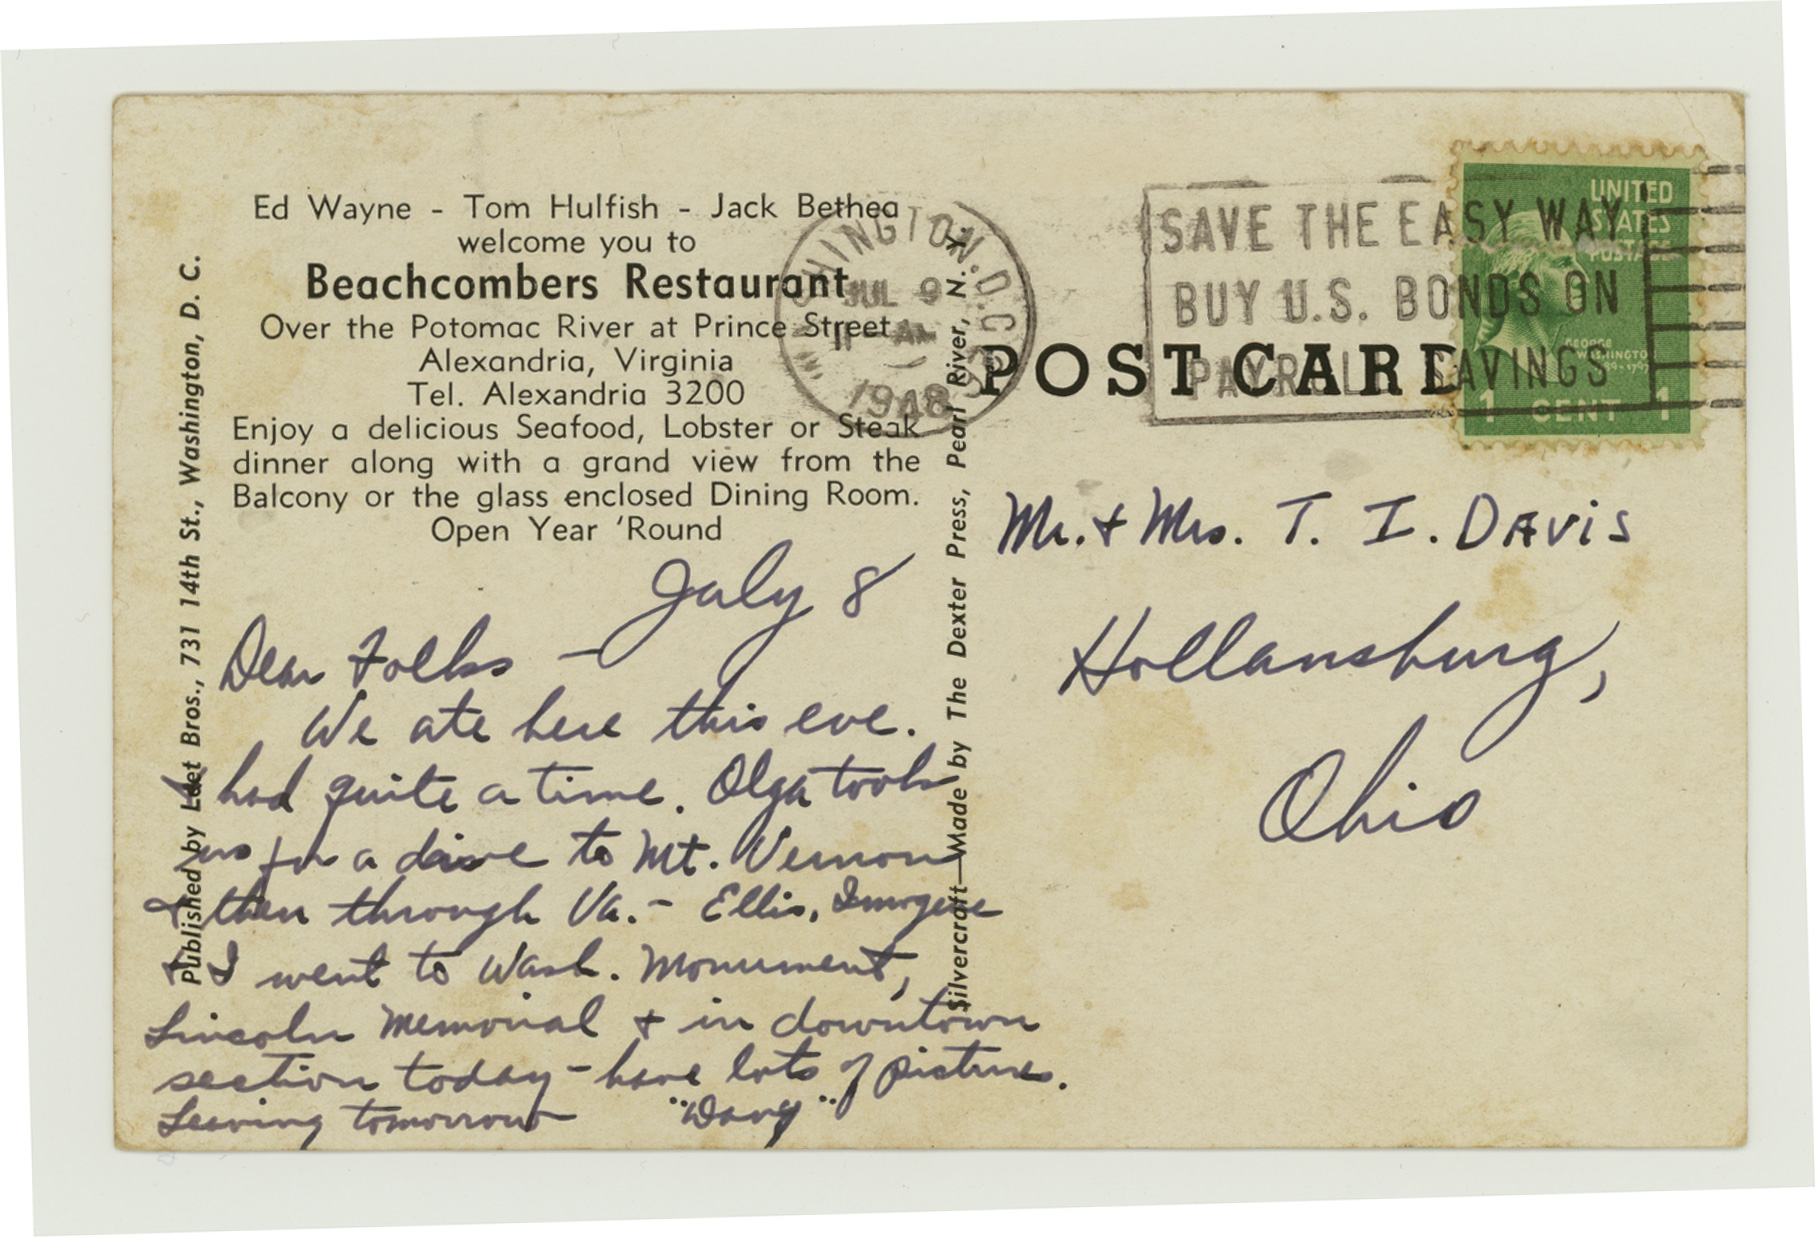 Ed Wayne - Tom Hulfish - Jack Bethea
welcome you to
Beachcombers Restaurant
Over the Potomac River at Prince Street
Alexandria, Virginia
Tel. Alexandria 3200
Enjoy a delicious Seafood, Lobster or Steak
dinner along with a grand view from the
Balcony or the glass enclosed Dining Room.
Open Year 'Round
July 8
Dear Folks -
We ate here this eve.
& had quite a time. Olga took
us for a drive to Mt. Vernon
& then through Va. - Ellis, Imogene
& I went to Wash. Monument,
Lincoln Memorial & in downtown
section today - have lots of pictures.
Leaving tomorrow "Davy"
Published by L. Bros., 731 14th St., Washington, D. C.
Silvercraft—Made by The Dexter Press, Pearl River, N. Y.
WASHINGTON, D.C.
JUL 9
AM
1948
SAVE THE EASY WAY
BUY U.S. BONDS ON
PAYROLL SAVINGS
UNITED
STATES
POSTAGE
GEORGE
WASHINGTON
1 CENT 1
POST CARD
Mr. & Mrs. T. I. DAVIS
Hollansburg,
Ohio